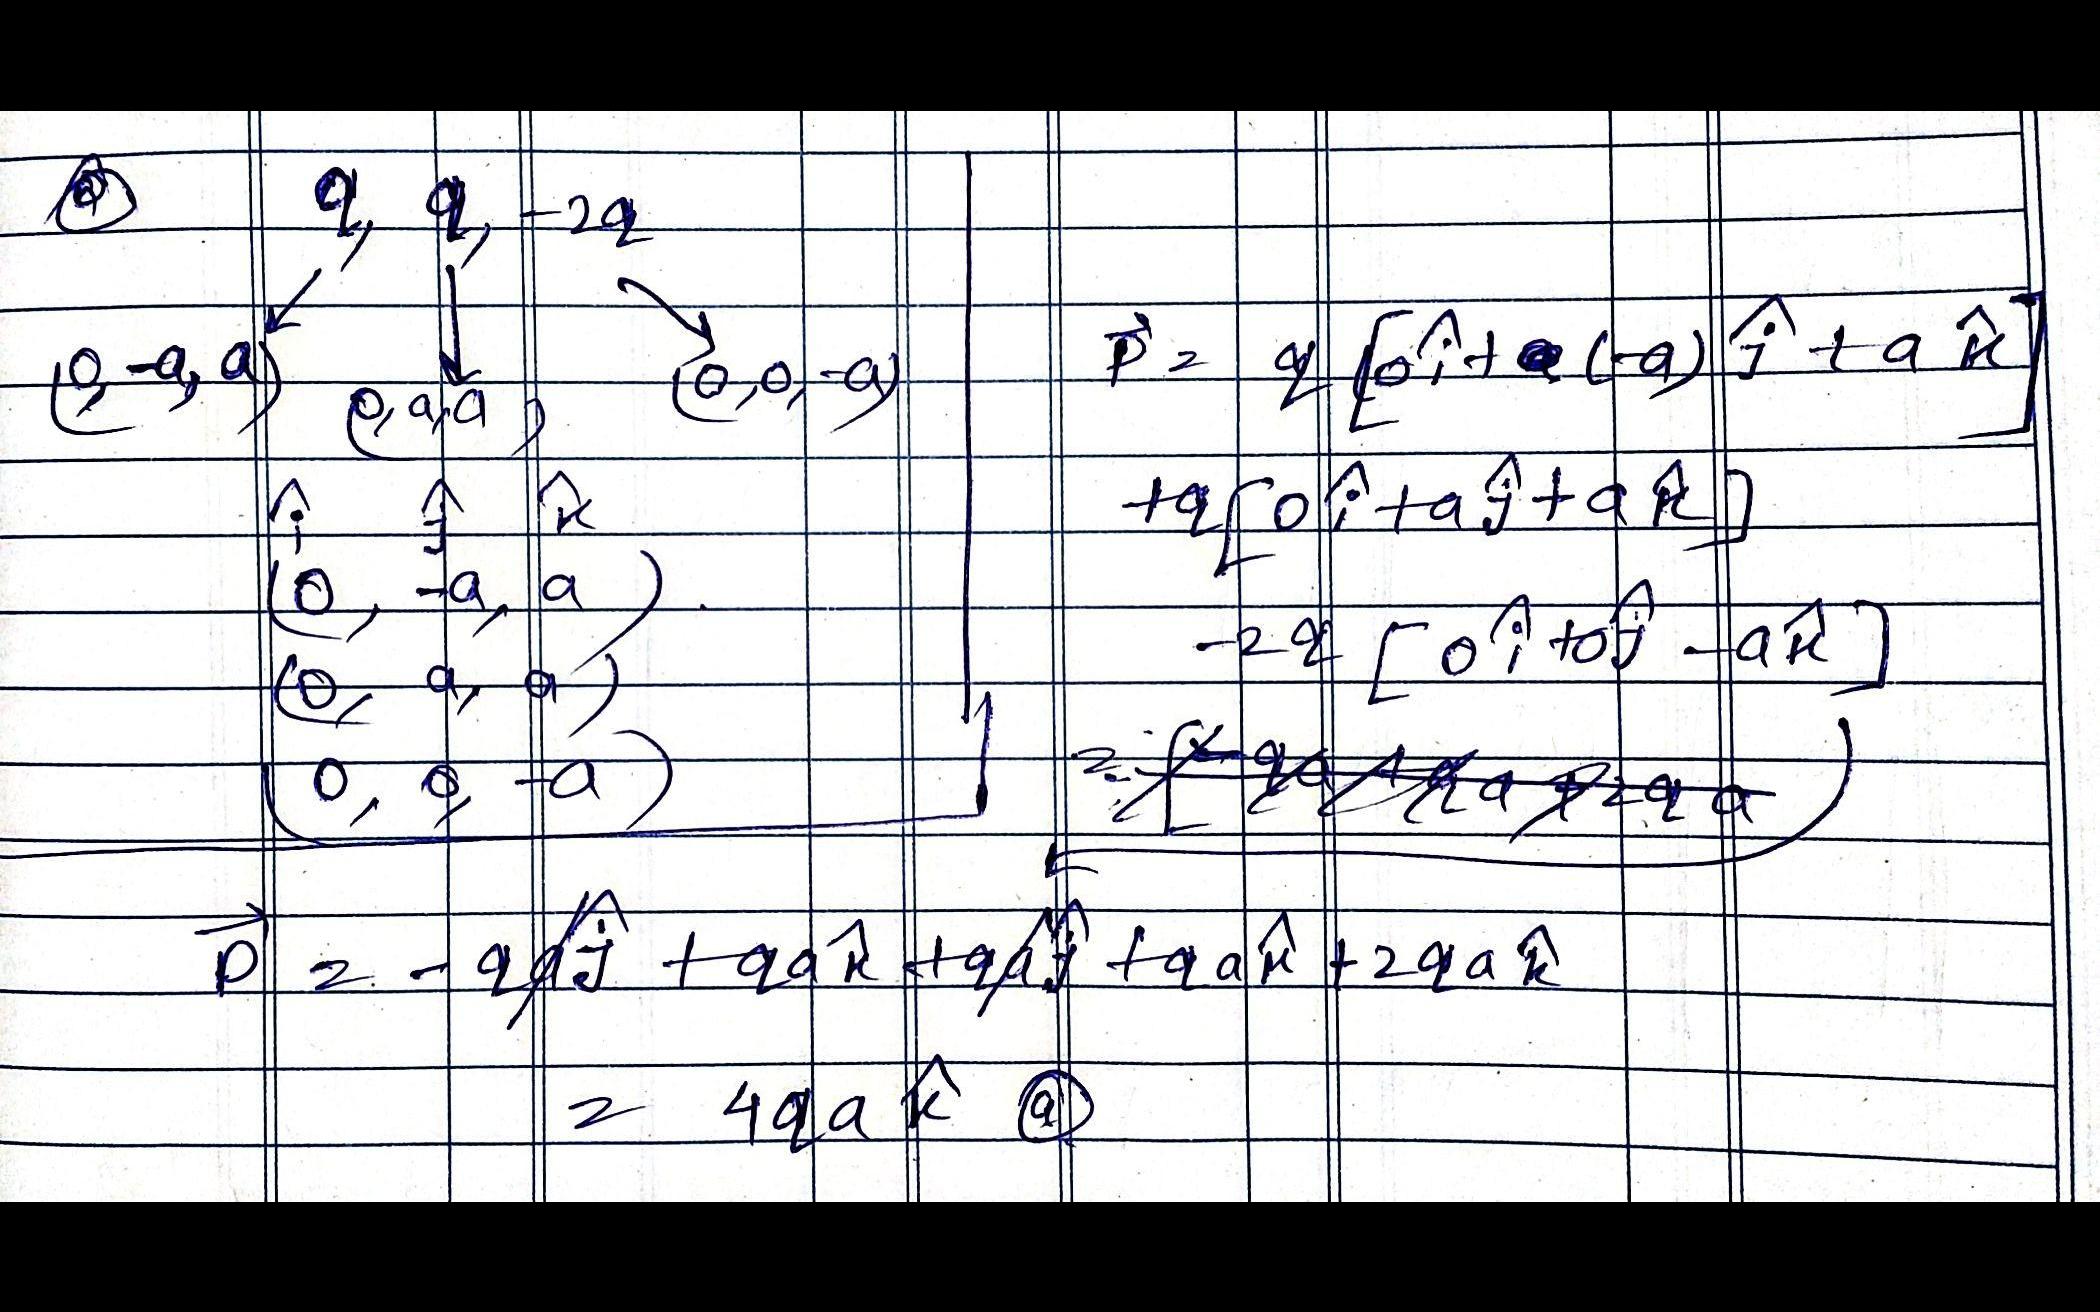 Q q, q, -2q
(0, -a, a) (0, a, a) (0, 0, -a)
î ĵ k̂
(0, -a, a)
(0, a, a)
(0, 0, -a)
P⃗ = q [0î + (-a) ĵ + a k̂]
+q [0î + aĵ + a k̂]
-2q [0î + 0ĵ - a k̂]
= [ - qa + qa + 2qa
P⃗ = - qaĵ + qa k̂ + qaĵ + qa k̂ + 2qa k̂
= 4qa k̂ (a)